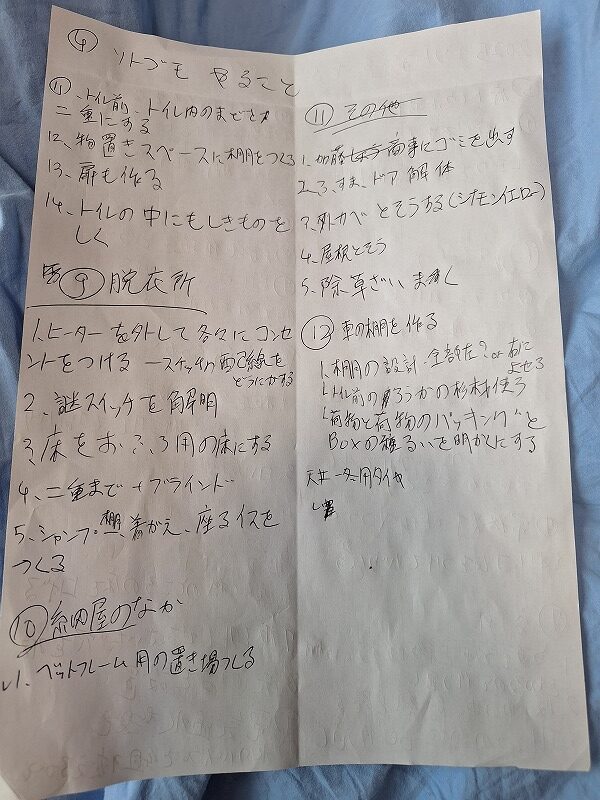 ④ ソトゴモ やること
11、トイレ前、トイレ内のまどさ
二重にする
12、物置きスペースに棚をつくる
13、扉も作る
14、トイレの中にもしきものを
しく
⑨ 脱衣所
1、ヒーターを外して各々にコンセ
ントをつける ースイッチの配線を
どうにかする
2、謎スイッチを解明
3、床をおふろ用の床にする
4、二重まど + ブラインド
5、シャンプー棚、着がえ、座るイスを
つくる
⑩ 納屋のなか
1、ベットフレーム用の置き場つくる
⑪ その他
1、加藤商事にゴミを出す
2、ふすま、ドア解体
3、外カベ とそうする(シオモンイエロー)
4、屋根とそう
5、除草ざいまく
⑫ 車の棚を作る
1、棚の設計 全部左? or 右に
よせる
トイレ前のろうかの杉材使う
荷物と荷物のパッキングと
Boxの種るいを明かにする